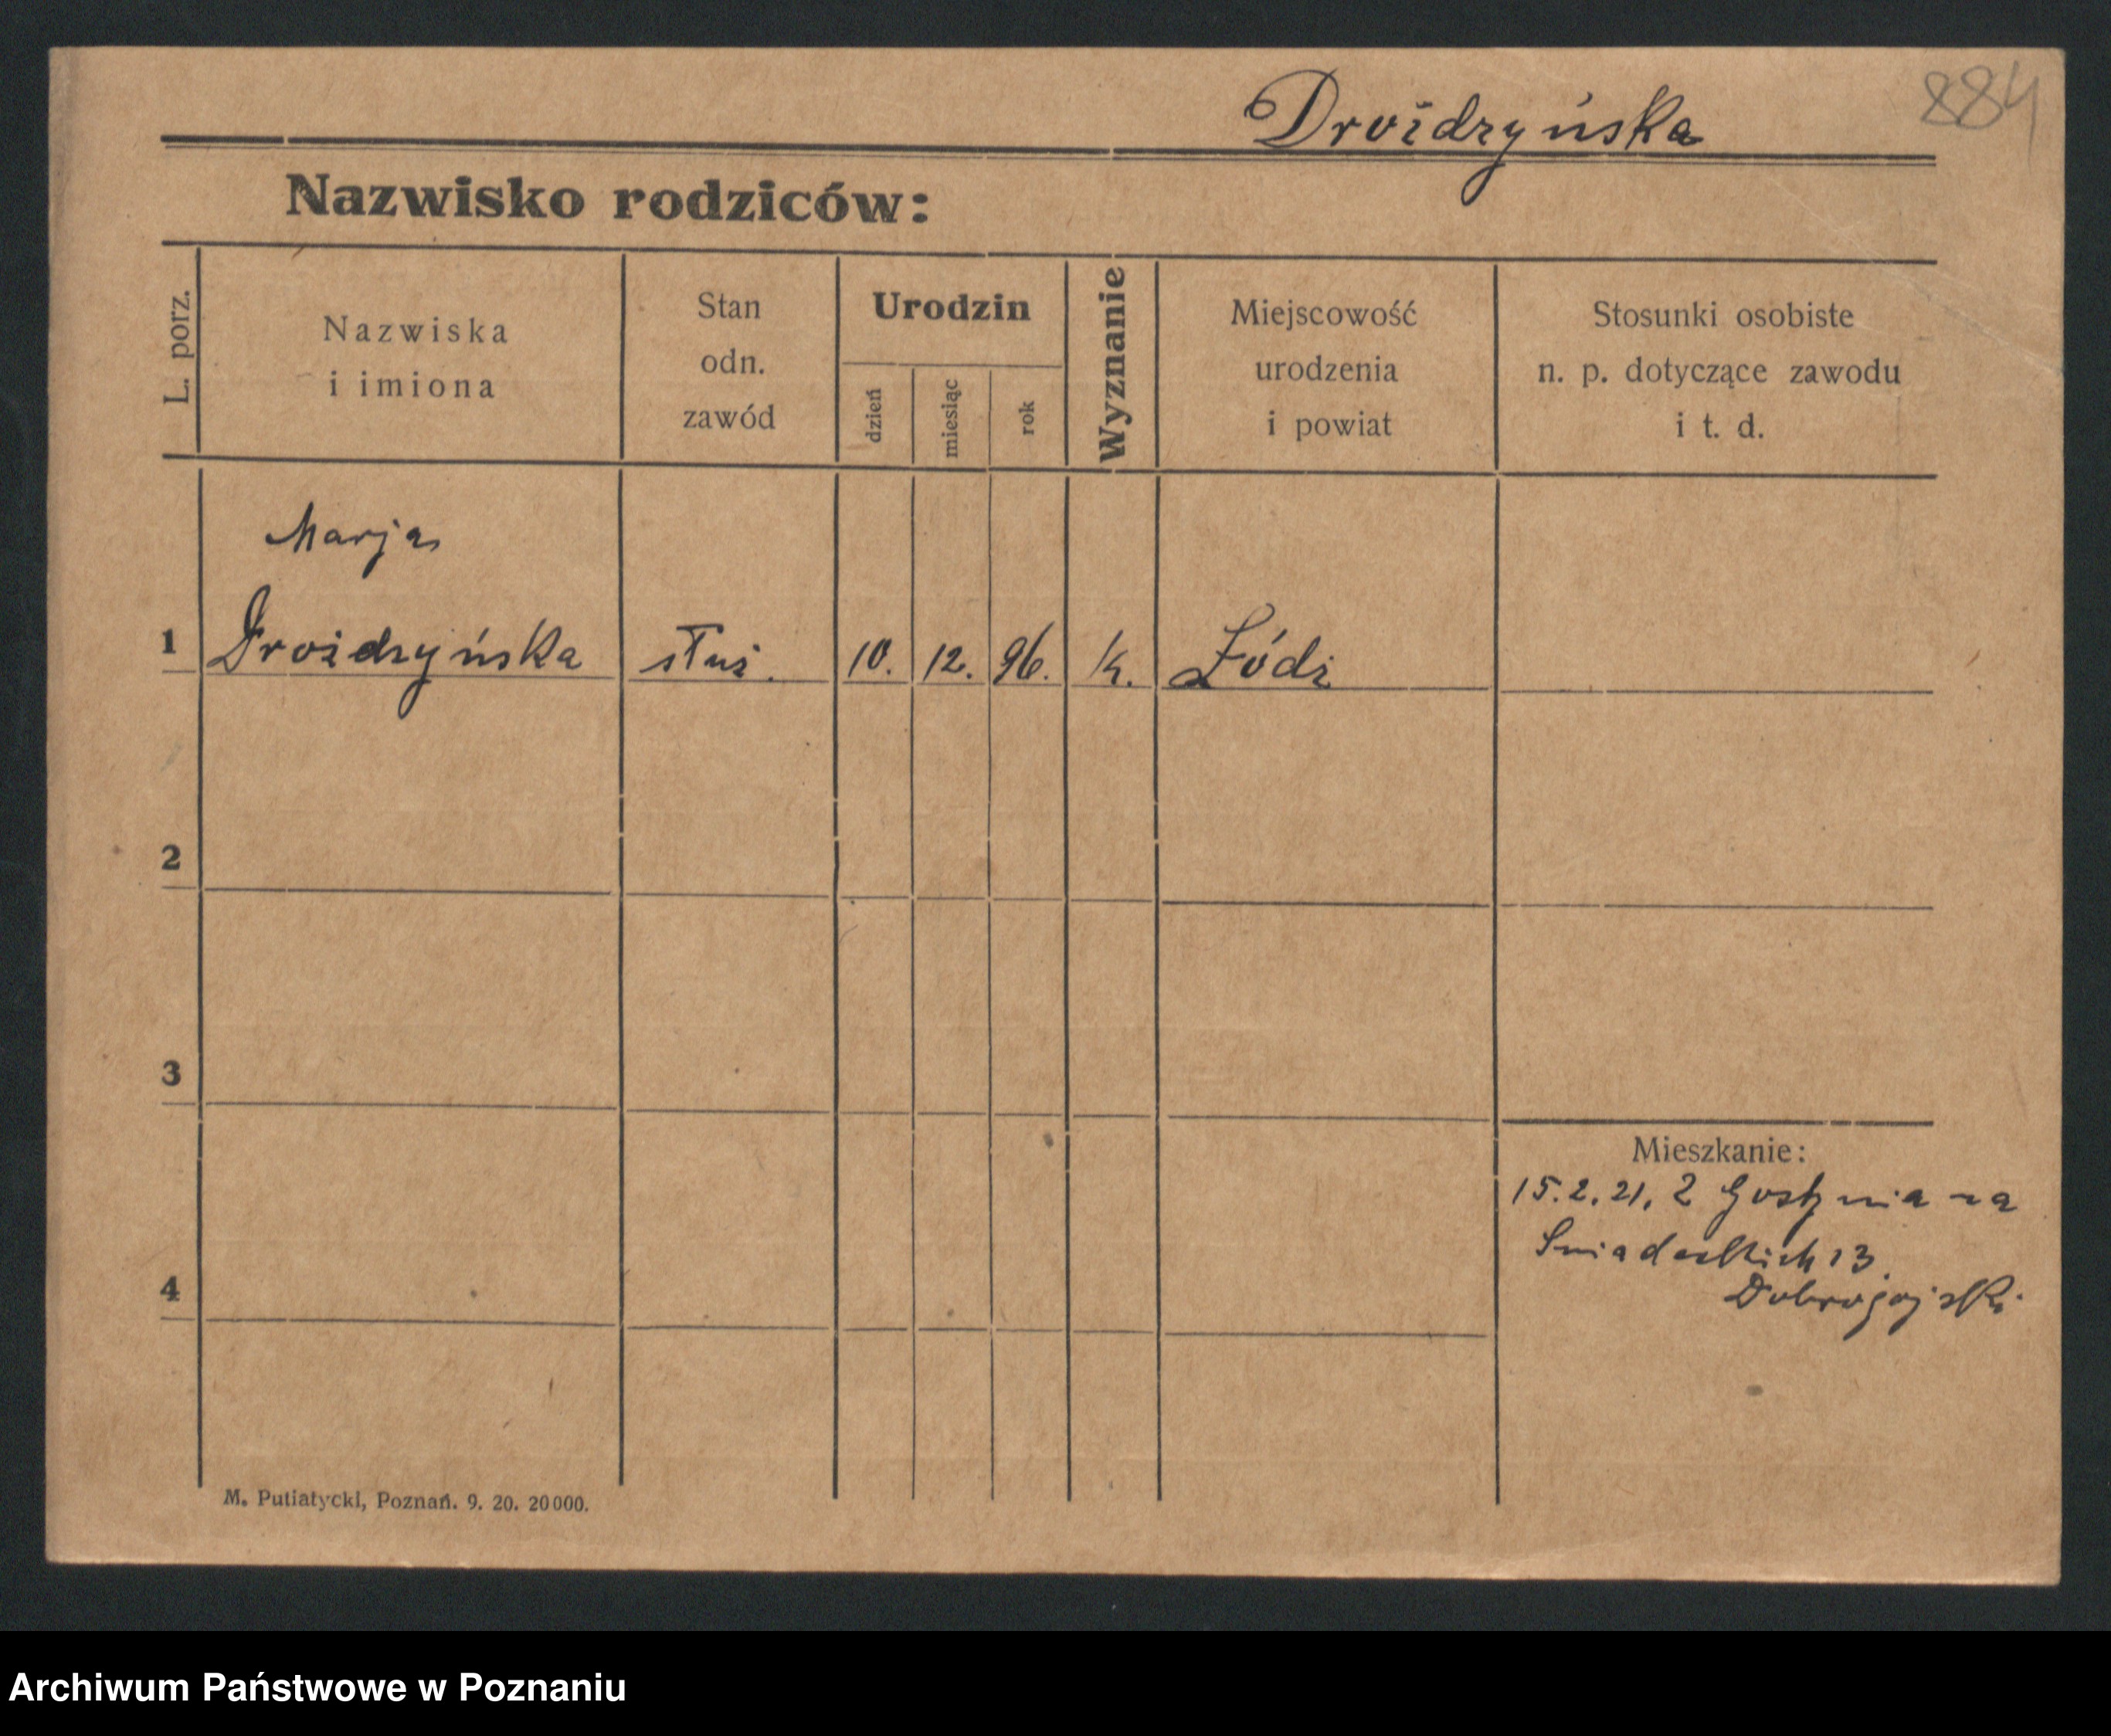 884
Drożdżyńska
Nazwisko rodziców:
L. porz.
Nazwiska
i imiona
Stan
odn.
zawód
Urodzin
dzień
miesiąc
rok
Wyznanie
Miejscowość
urodzenia
i powiat
Stosunki osobiste
n. p. dotyczące zawodu
i t. d.
Marja
1 Drożdżyńska służ. 10. 12. 96. k. Łódź
2
3
4
Mieszkanie:
15.2.21. z Gostynia na
Śniadeckich 13.
Dobrojojski
M. Putiatycki, Poznań. 9. 20. 20000.
Archiwum Państwowe w Poznaniu